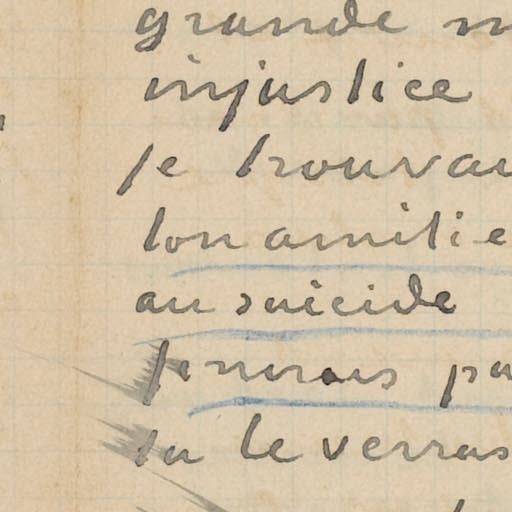 grande
injustice
Je trouvai
ton amitie
au suicide
Je pa
tu le verras